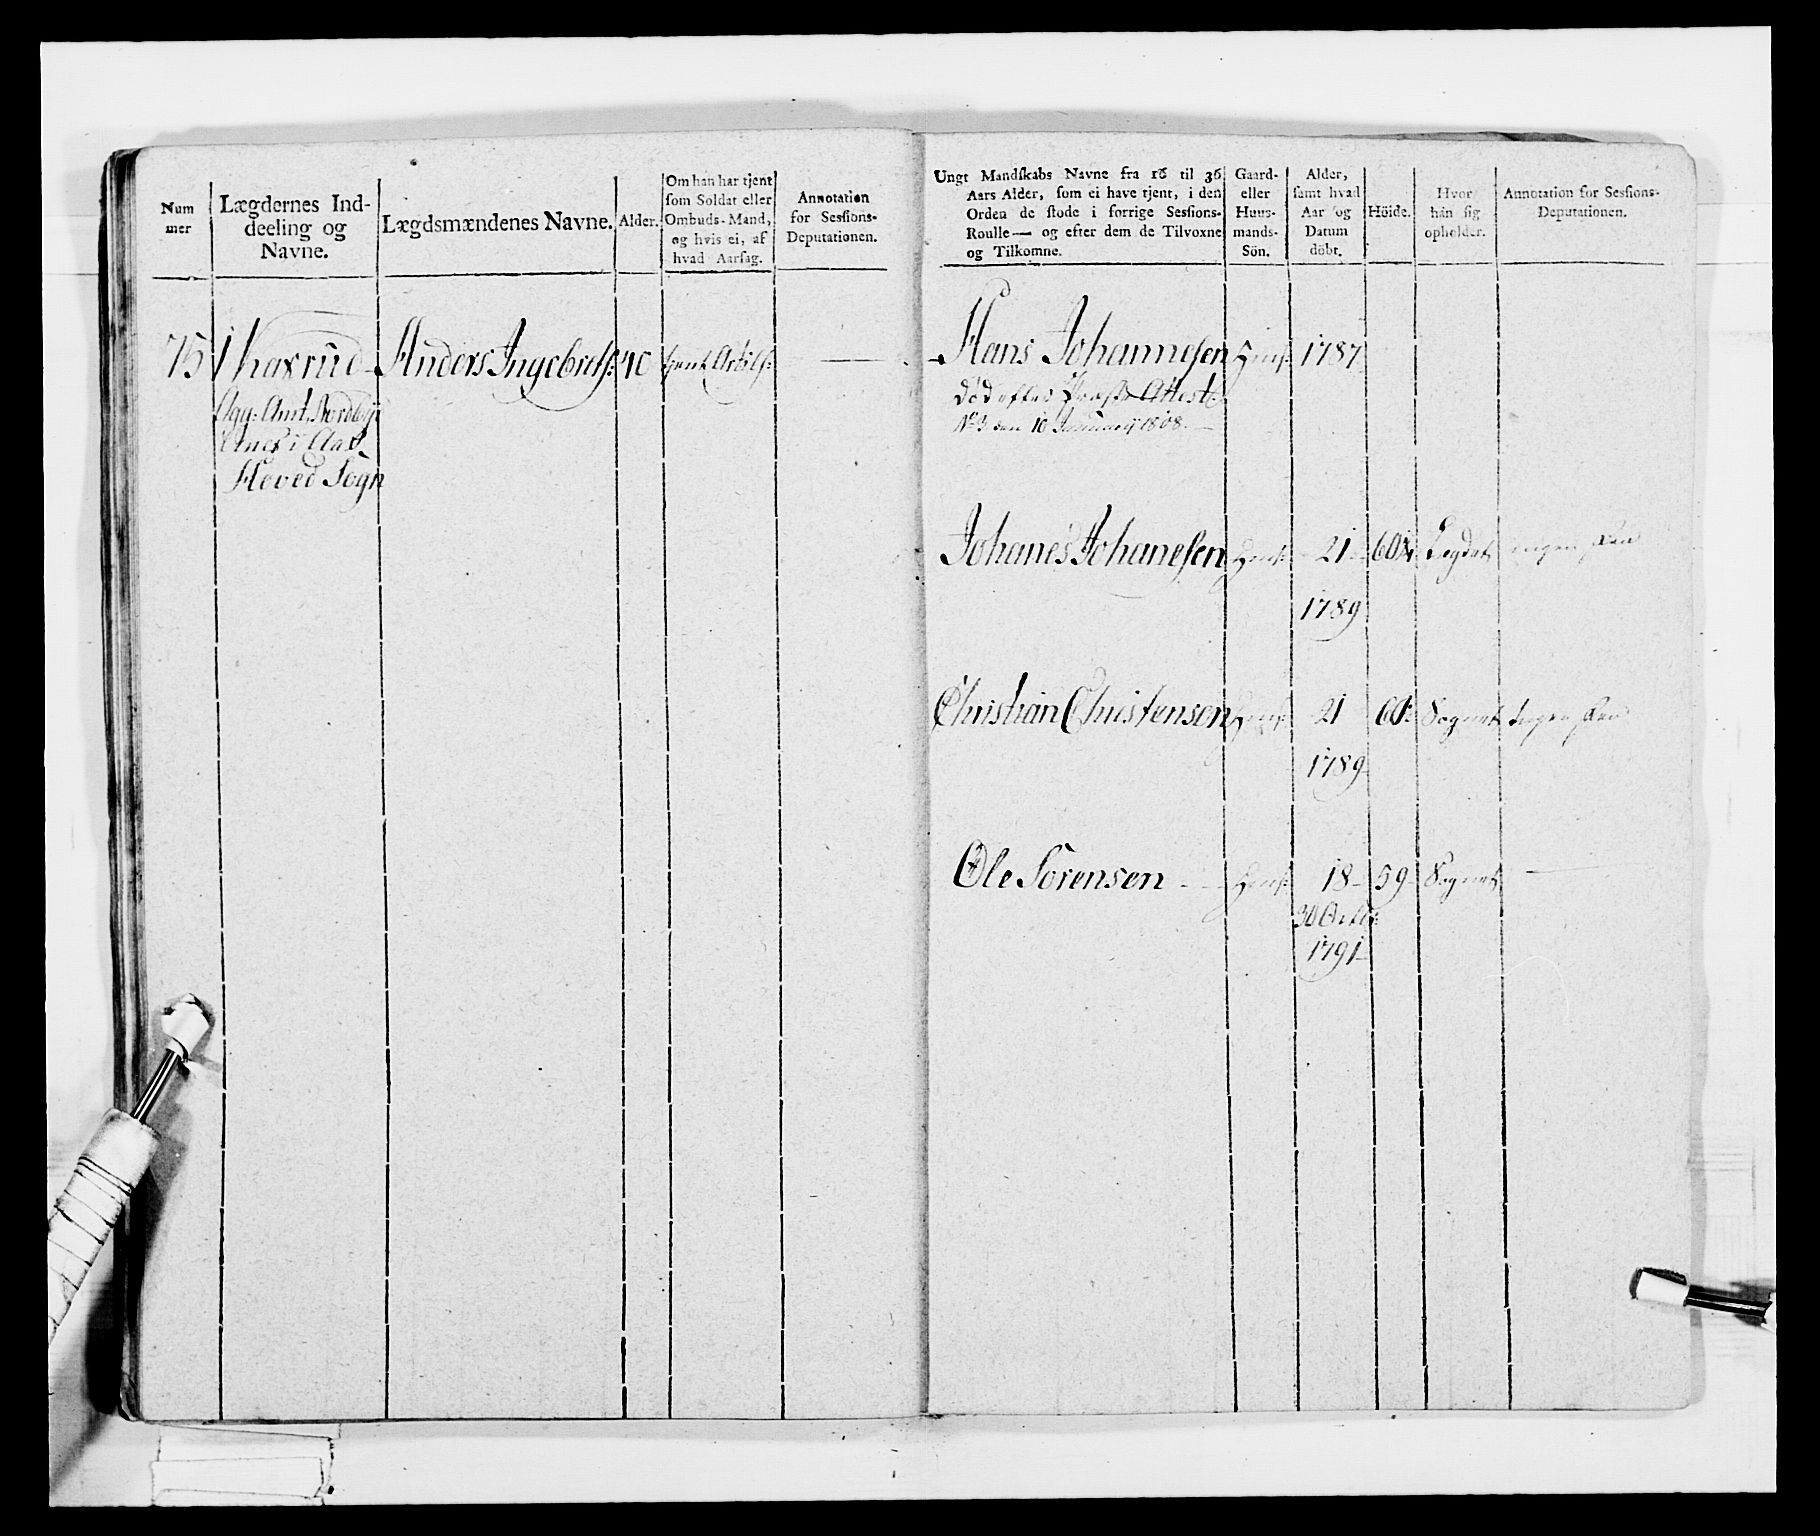 Num
mer
Lægdernes Ind-
deeling og
Navne.
Lægdsmændenes Navne.
Alder.
Om han har tjent
som Soldat eller
Ombuds-Mand,
og hvis ei, af
hvad Aarsag.
Annotation
for Sessions-
Deputationen.
75
Anders Ingebrets:
40
Hoved Sogn
Ungt Mandskabs Navne fra 16 til 36
Aars Alder, som ei have tjent, i den
Orden de stode i forrige Sessions-
Roulle — og efter dem de Tilvoxne
og Tilkomne.
Gaard-
eller
Huus-
mands-
Sön.
Alder,
samt hvad
Aar og
Datum
döbt.
Höide.
Hvor
han sig
opholder.
Annotation for Sessions-
Deputationen.
Hans Johannesen
1787
Död efter Præste Attest
No 3 den 10 January 1808.
Johanes Johanesen
21
Legdet
ingen
1789
Christian Christensen
21
Sognet
Ingen
1789
Ole Sörensen
18
59
Sognet
30 Octbr:
1791